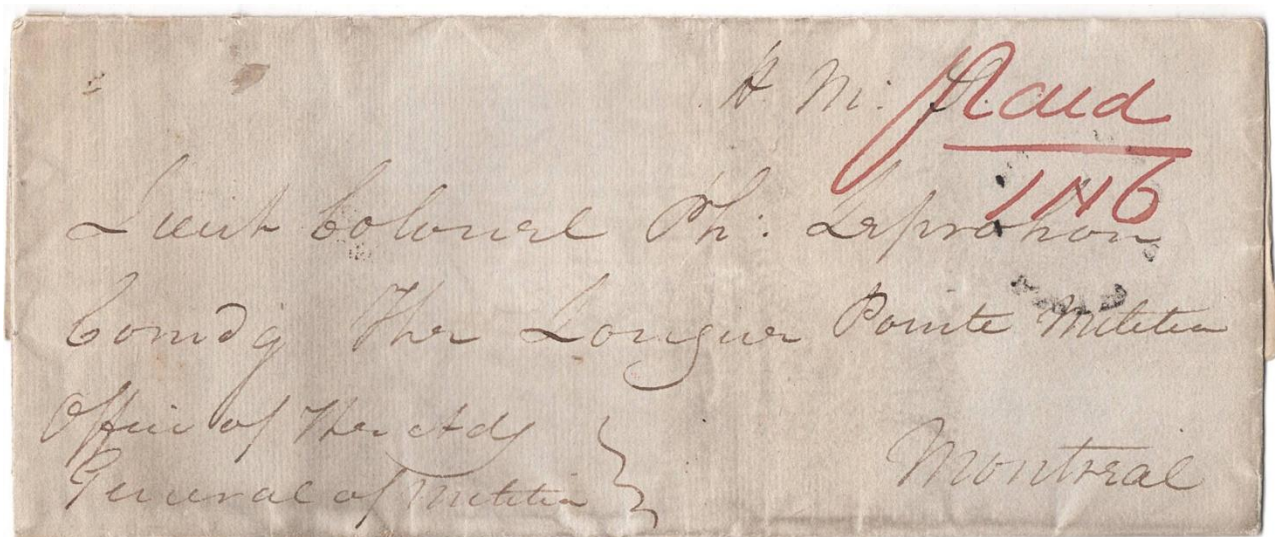 H. M. S. Paid
1N6
Lieut Colonel Ph: Leprohon
Comdg The Longue Pointe Militia
Office of The Adj
General of Militia
Montreal